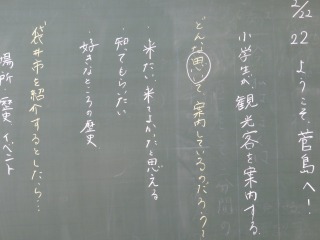 2/22
22 ようこそ、菅島へ!
小学生が観光客を案内する。
どんな思いで案内しているのだろう?
・来たい、来てよかったと思える
・知ってもらいたい
・好きなところの歴史
袋井市を紹介するとしたら…
場所 歴史 イベント